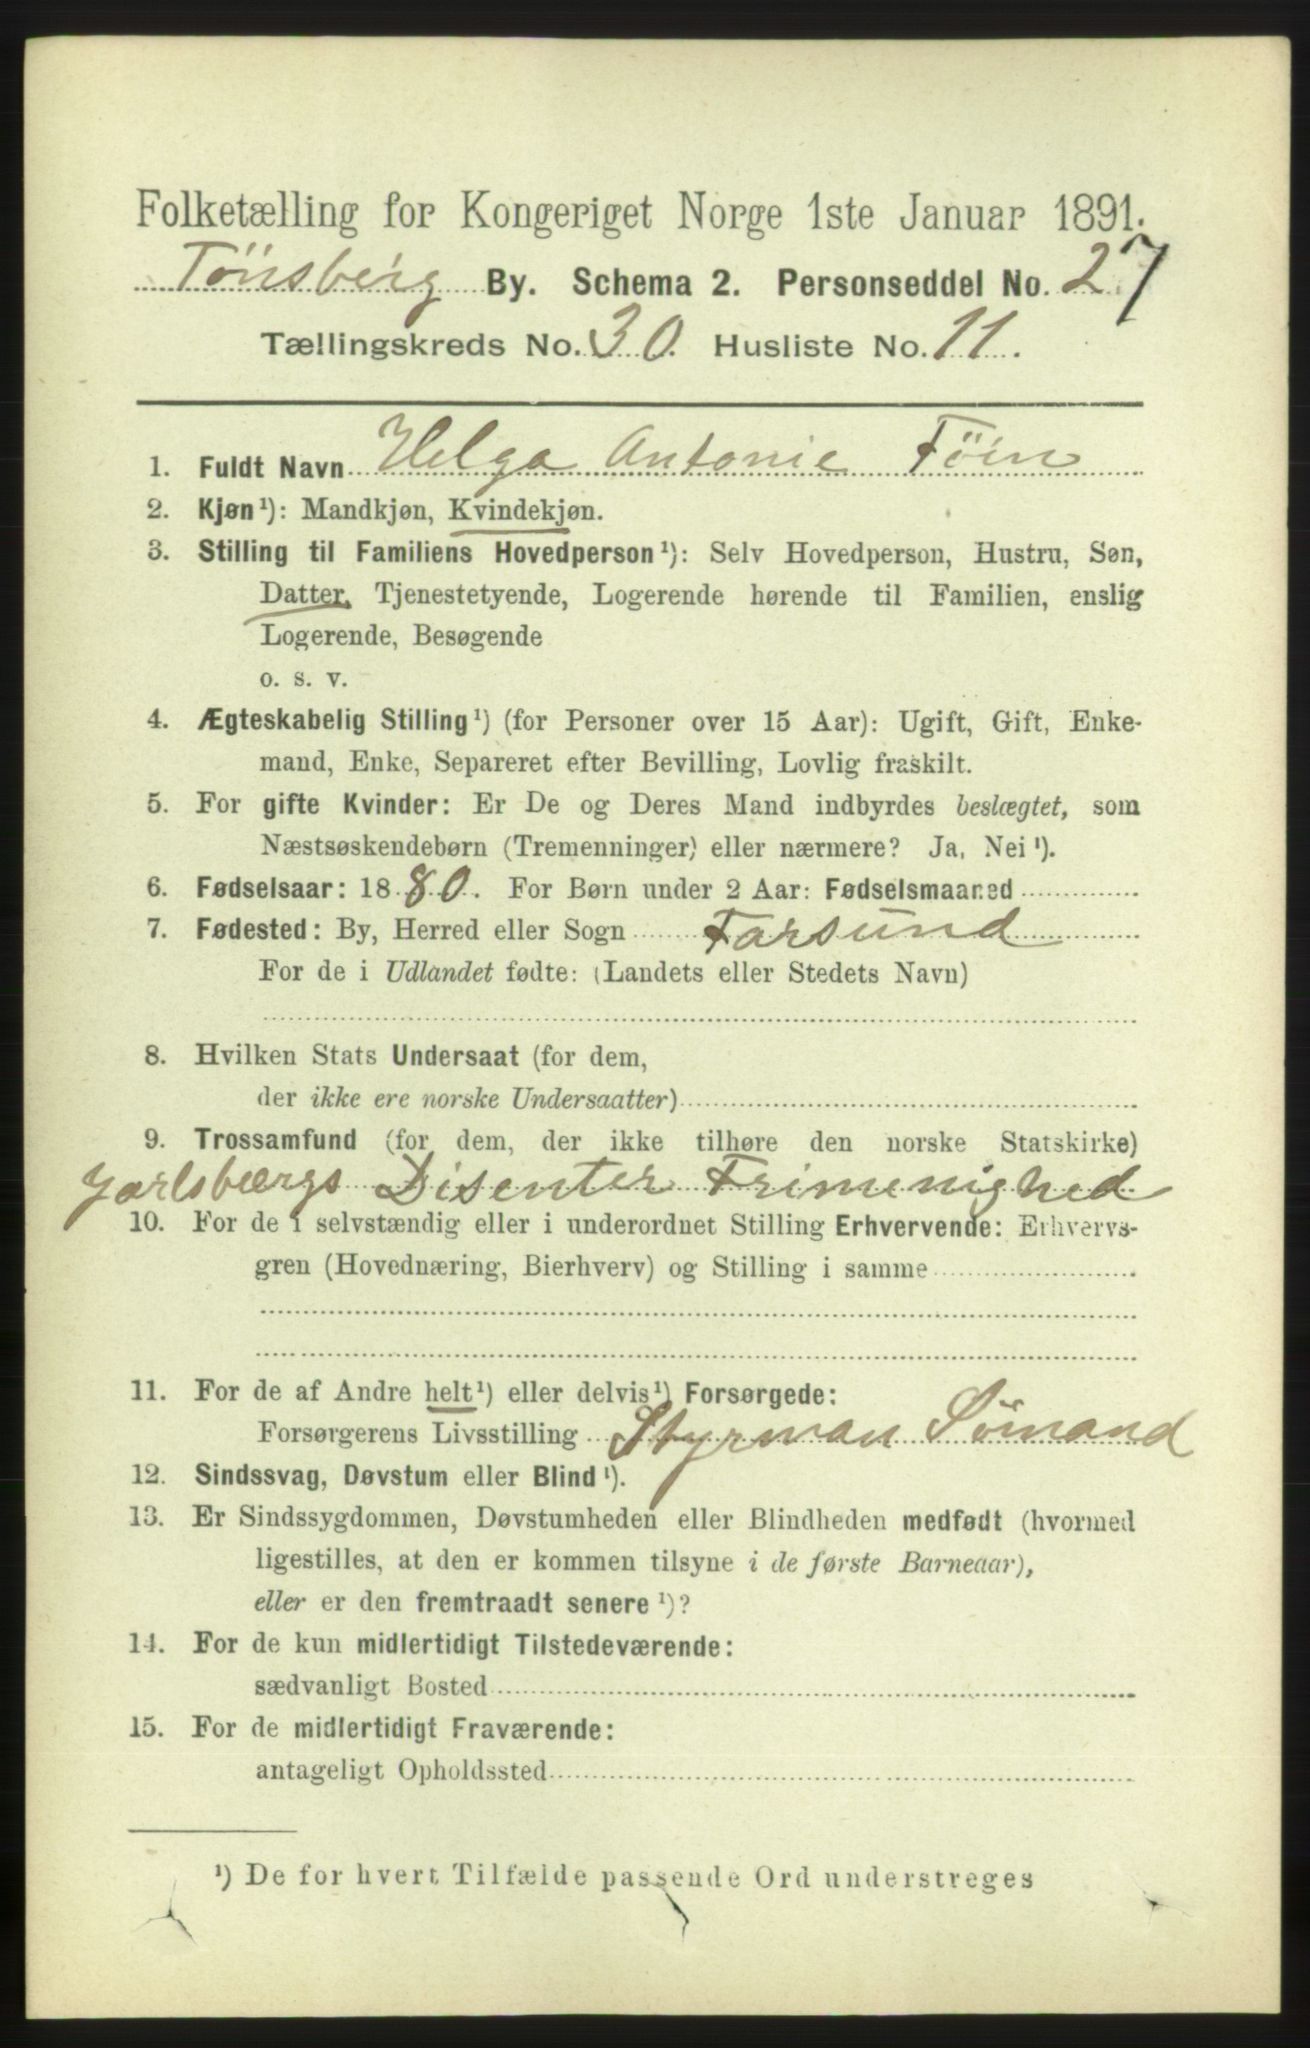 Folketælling for Kongeriget Norge 1ste Januar 1891.
Tönsberg By. Schema 2. Personseddel No. 27
Tællingskreds No. 30. Husliste No. 11.
1. Fuldt Navn Helga Antonie Föin
2. Kjøn¹): Mandkjøn, Kvindekjøn.
3. Stilling til Familiens Hovedperson¹): Selv Hovedperson, Hustru, Søn,
Datter, Tjenestetyende, Logerende hørende til Familien, enslig
Logerende, Besøgende
o. s. v.
4. Ægteskabelig Stilling¹) (for Personer over 15 Aar): Ugift, Gift, Enke-
mand, Enke, Separeret efter Bevilling, Lovlig fraskilt.
5. For gifte Kvinder: Er De og Deres Mand indbyrdes beslægtet, som
Næstsøskendebørn (Tremenninger) eller nærmere? Ja, Nei¹).
6. Fødselsaar: 1880. For Børn under 2 Aar: Fødselsmaaned
7. Fødested: By, Herred eller Sogn Farsund
For de i Udlandet fødte: (Landets eller Stedets Navn)
8. Hvilken Stats Undersaat (for dem,
der ikke ere norske Undersaatter)
9. Trossamfund (for dem, der ikke tilhøre den norske Statskirke)
Jarlsbærgs Disenter Frimenighed
10. For de i selvstændig eller i underordnet Stilling Erhvervende: Erhvervs-
gren (Hovednæring, Bierhverv) og Stilling i samme
11. For de af Andre helt¹) eller delvis¹) Forsørgede:
Forsørgerens Livsstilling Styrman Sömand
12. Sindssvag, Døvstum eller Blind¹).
13. Er Sindssygdommen, Døvstumheden eller Blindheden medfødt (hvormed
ligestilles, at den er kommen tilsyne i de første Barneaar),
eller er den fremtraadt senere¹)?
14. For de kun midlertidigt Tilstedeværende:
sædvanligt Bosted
15. For de midlertidigt Fraværende:
antageligt Opholdssted
¹) De for hvert Tilfælde passende Ord understreges